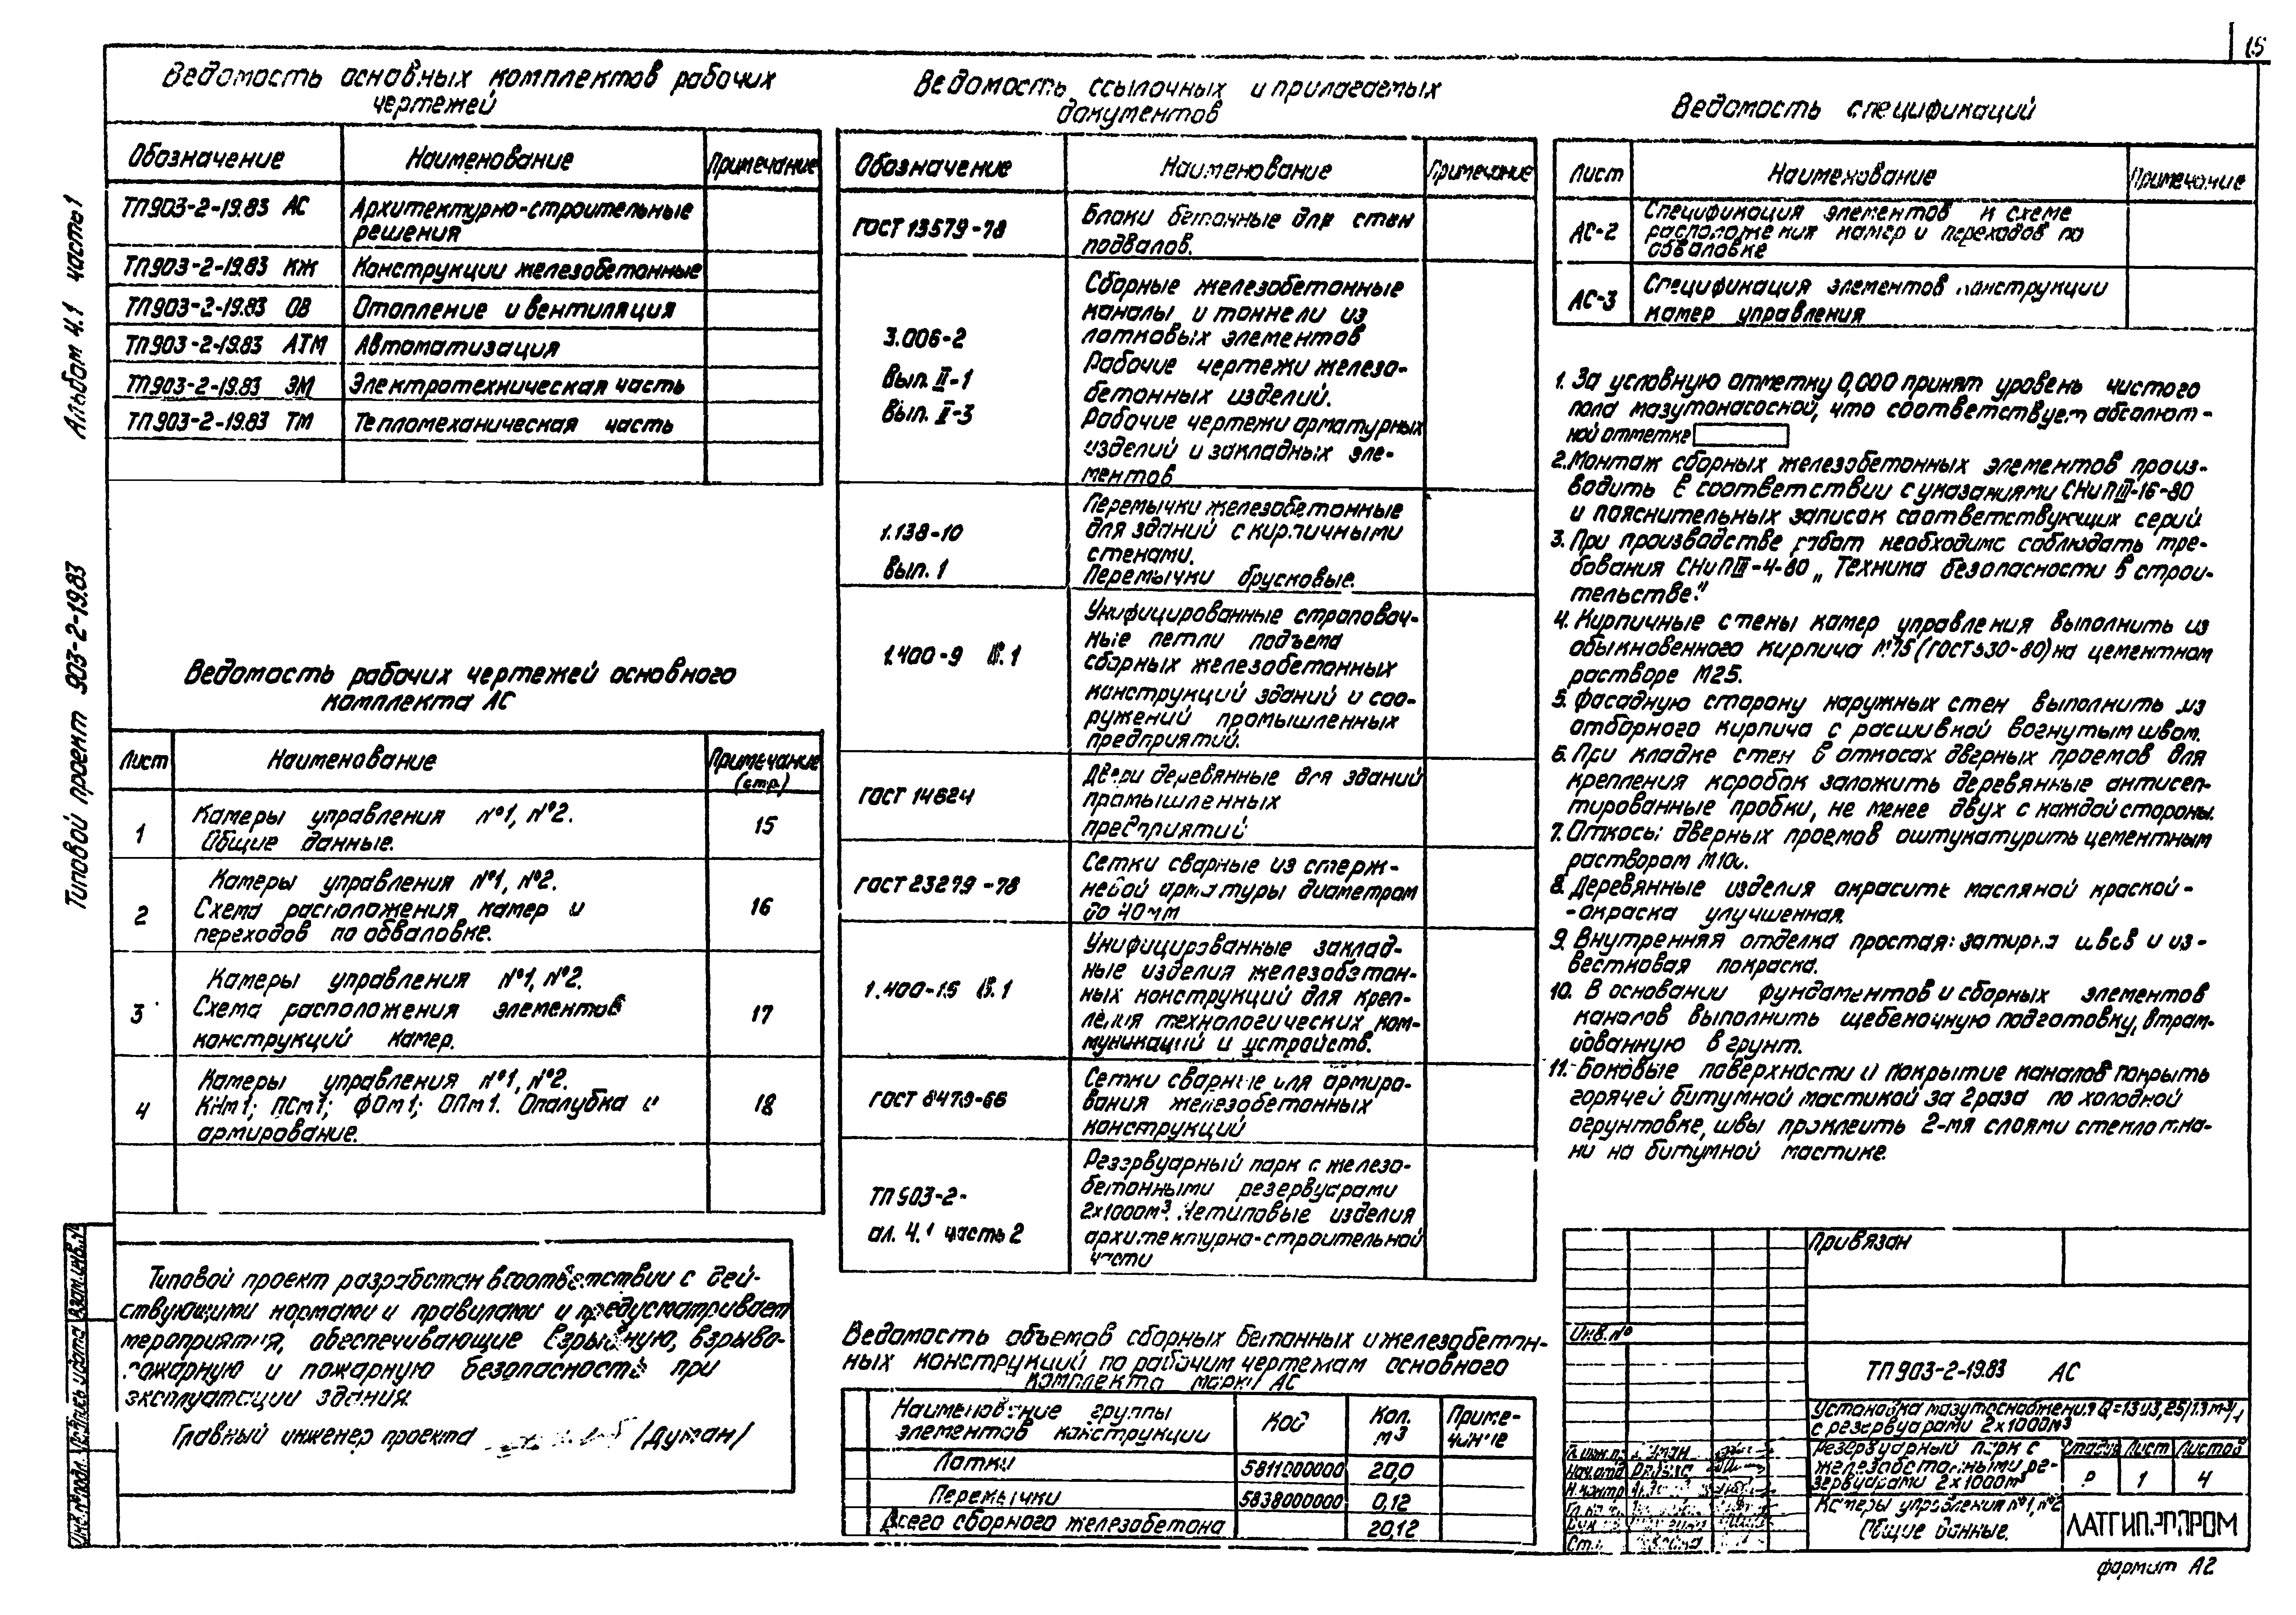 15
Альбом 4.1 часть 1
Типовой проект 903-2-19.83
Ведомость основных комплектов рабочих
чертежей
Обозначение Наименование Примечание
ТП903-2-19.83 АС Архитектурно-строительные
решения
ТП903-2-19.83 КЖ Конструкции железобетонные
ТП903-2-19.83 ОВ Отопление и вентиляция
ТП903-2-19.83 АТМ Автоматизация
ТП903-2-19.83 ЭМ Электротехническая часть
ТП903-2-19.83 ТМ Тепломеханическая часть
Ведомость рабочих чертежей основного
комплекта АС
Лист Наименование Примечание
(стр.)
1 Камеры управления №1, №2.
Общие данные. 15
2 Камеры управления №1, №2.
Схема расположения камер и
переходов по обваловке. 16
3 Камеры управления №1, №2.
Схема расположения элементов
конструкций камер. 17
4 Камеры управления №1, №2.
КНм1; ПСм1; ФОм1; ОПм1. Опалубка и
армирование. 18
Типовой проект разработан в соответствии с дей-
ствующими нормами и правилами и предусматривает
мероприятия, обеспечивающие взрывную, взрыво-
пожарную и пожарную безопасность при
эксплуатации здания.
Главный инженер проекта /Думан/
Ведомость ссылочных и прилагаемых
документов
Обозначение Наименование Примечание
ГОСТ 13579-78 Блоки бетонные для стен
подвалов.
3.006-2
Вып. II-1
Вып. II-3
Сборные железобетонные
каналы и тоннели из
лотковых элементов
Рабочие чертежи железо-
бетонных изделий.
Рабочие чертежи арматурных
изделий и закладных эле-
ментов
1.138-10
Вып. 1
Перемычки железобетонные
для зданий с кирпичными
стенами.
Перемычки брусковые.
1.400-9 В.1
Унифицированные строповоч-
ные петли подъема
сборных железобетонных
конструкций зданий и соо-
ружений промышленных
предприятий.
ГОСТ 14624
Двери деревянные для зданий
промышленных
предприятий
ГОСТ 23279-78
Сетки сварные из стерж-
невой арматуры диаметром
до 40мм
1.400-15 В.1
Унифицированные заклад-
ные изделия железобетон-
ных конструкций для креп-
ления технологических ком-
муникаций и устройств.
ГОСТ 8479-66
Сетки сварные для армиро-
вания железобетонных
конструкций
ТП 903-2-
ал. 4.1 часть 2
Резервуарный парк с железо-
бетонными резервуарами
2х1000м³. Нетиповые изделия
архитектурно-строительной
части
Ведомость объемов сборных бетонных и железобетон-
ных конструкций по рабочим чертежам основного
комплекта марки АС
Наименование группы
элементов конструкции Код Кол.
м3 Приме-
чание
Лотки 5811000000 20,0
Перемычки 5838000000 0,12
Всего сборного железобетона 20,12
Ведомость спецификаций
Лист Наименование Примечание
АС-2 Спецификация элементов к схеме
расположения камер и переходов по
обваловке
АС-3 Спецификация элементов конструкции
камер управления
1. За условную отметку 0,000 принят уровень чистого
пола мазутонасосной, что соответствует абсолют-
ной отметке
2. Монтаж сборных железобетонных элементов произ-
водить в соответствии с указаниями СНиП III-16-80
и пояснительных записок соответствующих серий
3. При производстве работ необходимо соблюдать тре-
бования СНиП III-4-80 „Техника безопасности в строи-
тельстве."
4. Кирпичные стены камер управления выполнить из
обыкновенного кирпича М75 (ГОСТ 530-80) на цементном
растворе М25.
5. Фасадную сторону наружных стен выполнить из
отборного кирпича с расшивкой вогнутым швом.
6. При кладке стен в откосах дверных проемов для
крепления коробок заложить деревянные антисеп-
тированные пробки, не менее двух с каждой стороны.
7. Откосы дверных проемов оштукатурить цементным
раствором М100.
8. Деревянные изделия окрасить масляной краской-
-окраска улучшенная.
9. Внутренняя отделка простая: затирка швов и из-
вестковая покраска.
10. В основании фундаментов и сборных элементов
каналов выполнить щебеночную подготовку, втрам-
бованную в грунт.
11. Боковые поверхности и покрытие каналов покрыть
горячей битумной мастикой за 2 раза по холодной
огрунтовке, швы проклеить 2-мя слоями стеклотка-
ни на битумной мастике.
Привязан
Инв.№
ТП 903-2-19.83 АС
Установка мазутоснабжения Q=13
с резервуарами 2х1000м3
Резервуарный парк с
железобетонными ре-
зервуарами 2х1000м³
Стадия Лист Листов
Р 1 4
Камеры управления №1, №2
Общие данные.
ЛАТГИПРОПРОМ
Инв.№подл. Подпись и дата Взам.инв.№
формат А2